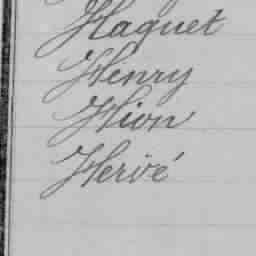 Haquet
Henry
Hion
Hervé